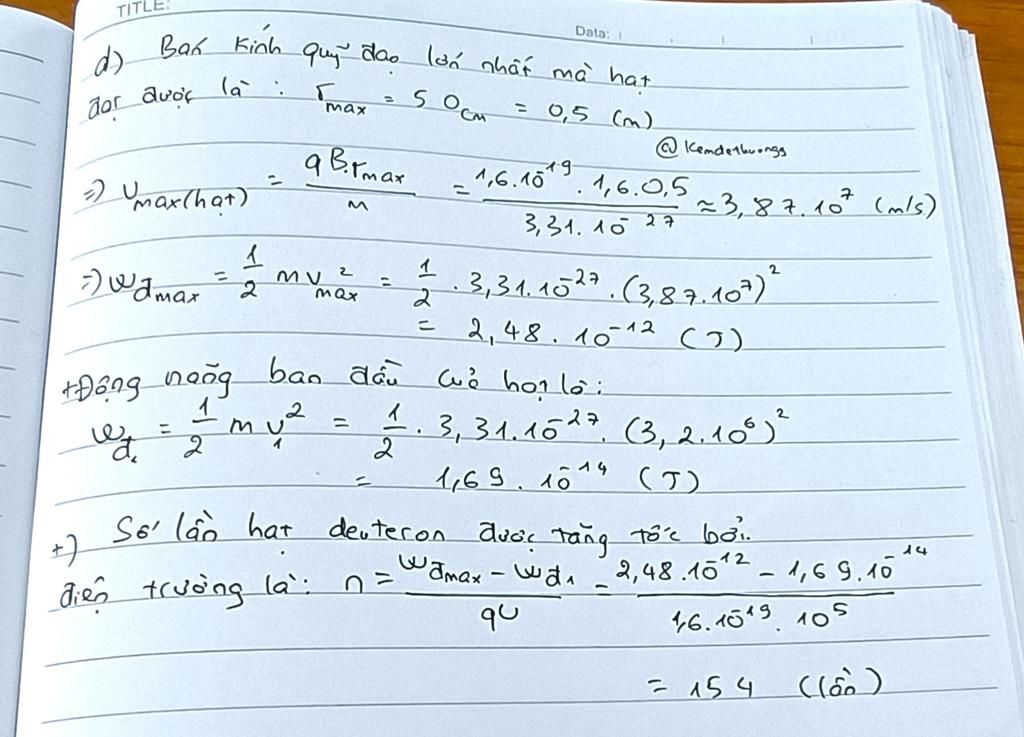 TITLE:
Data:
d) Bán kính quỹ đạo lớn nhất mà hạt
đạt được là : r_max = 50cm = 0,5 (m)
@Kemdethuongg
=> v_max(hạt) = qB.r_max / m = 1,6.10^-19 . 1,6.0,5 / 3,31.10^-27 ≈ 3,87.10^7 (m/s)
=> Wđmax = 1/2 mv_max^2 = 1/2 . 3,31.10^-27 . (3,87.10^7)^2
= 2,48 . 10^-12 (J)
+Động năng ban đầu của hạt là:
Wđ1 = 1/2 m v_1^2 = 1/2 . 3,31.10^-27 . (3,2.10^6)^2
= 1,69 . 10^-14 (J)
+) Số lần hạt deuteron được tăng tốc bởi
điện trường là: n = Wđmax - Wđ1 / qU = 2,48.10^-12 - 1,69.10^-14 / 1,6.10^-19 . 10^5
= 154 (lần)